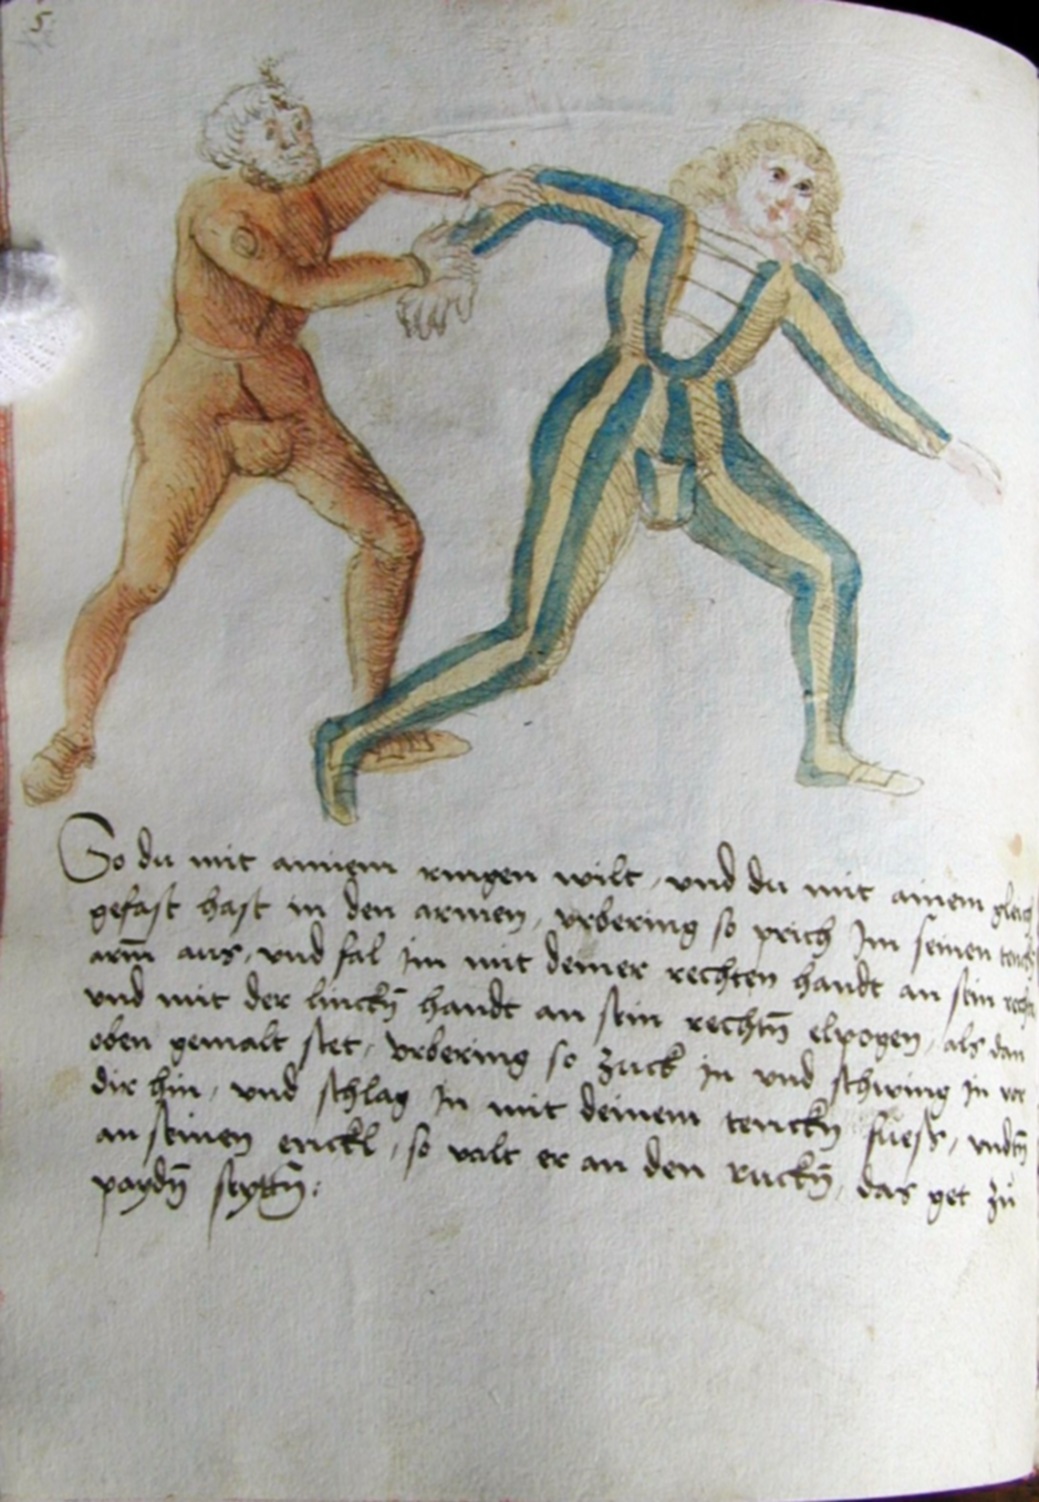 5
So du mit ainem ringen wilt, und du mit ainem gleich
gefast hast in den armen, urbering so prich Im seinen tenckn
arm̄ aus, und fal im mit deiner rechten handt an sein recht
und mit der linckn̄ handt an sein rechtn̄ elpogen, als dan
oben gemalt stet, urbering so zuck in und schwing in vor
dir hin, und schlag In mit deinem tenckn fuess, undtn̄
an seinen enckl, so valt er an den ruckn̄, das get zů
paydn̄ seyttn̄: